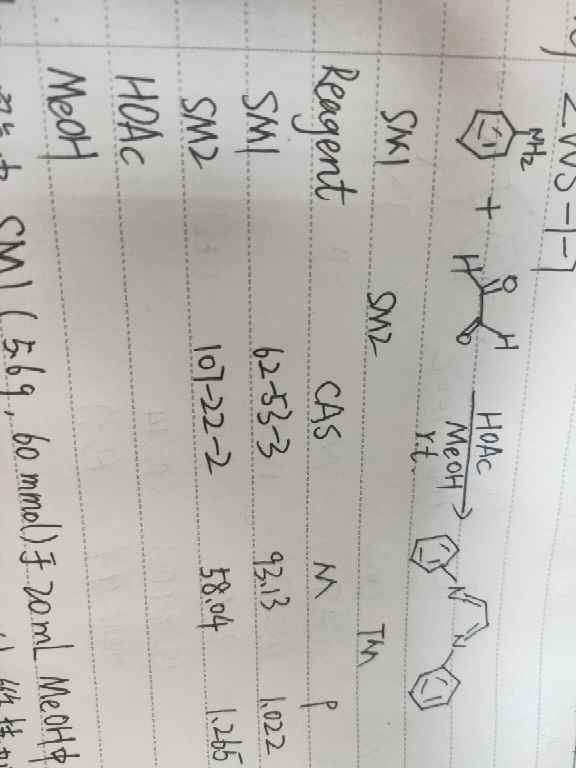 ZWS-1-1
NH2 + H O O H HOAc MeOH rt. N N
SM1 SM2 TM
Reagent CAS M ρ
SM1 62-53-3 93.13 1.022
SM2 107-22-2 58.04 1.265
HOAc
MeOH
SM1 (5.6g, 60 mmol)于20mL MeOH中